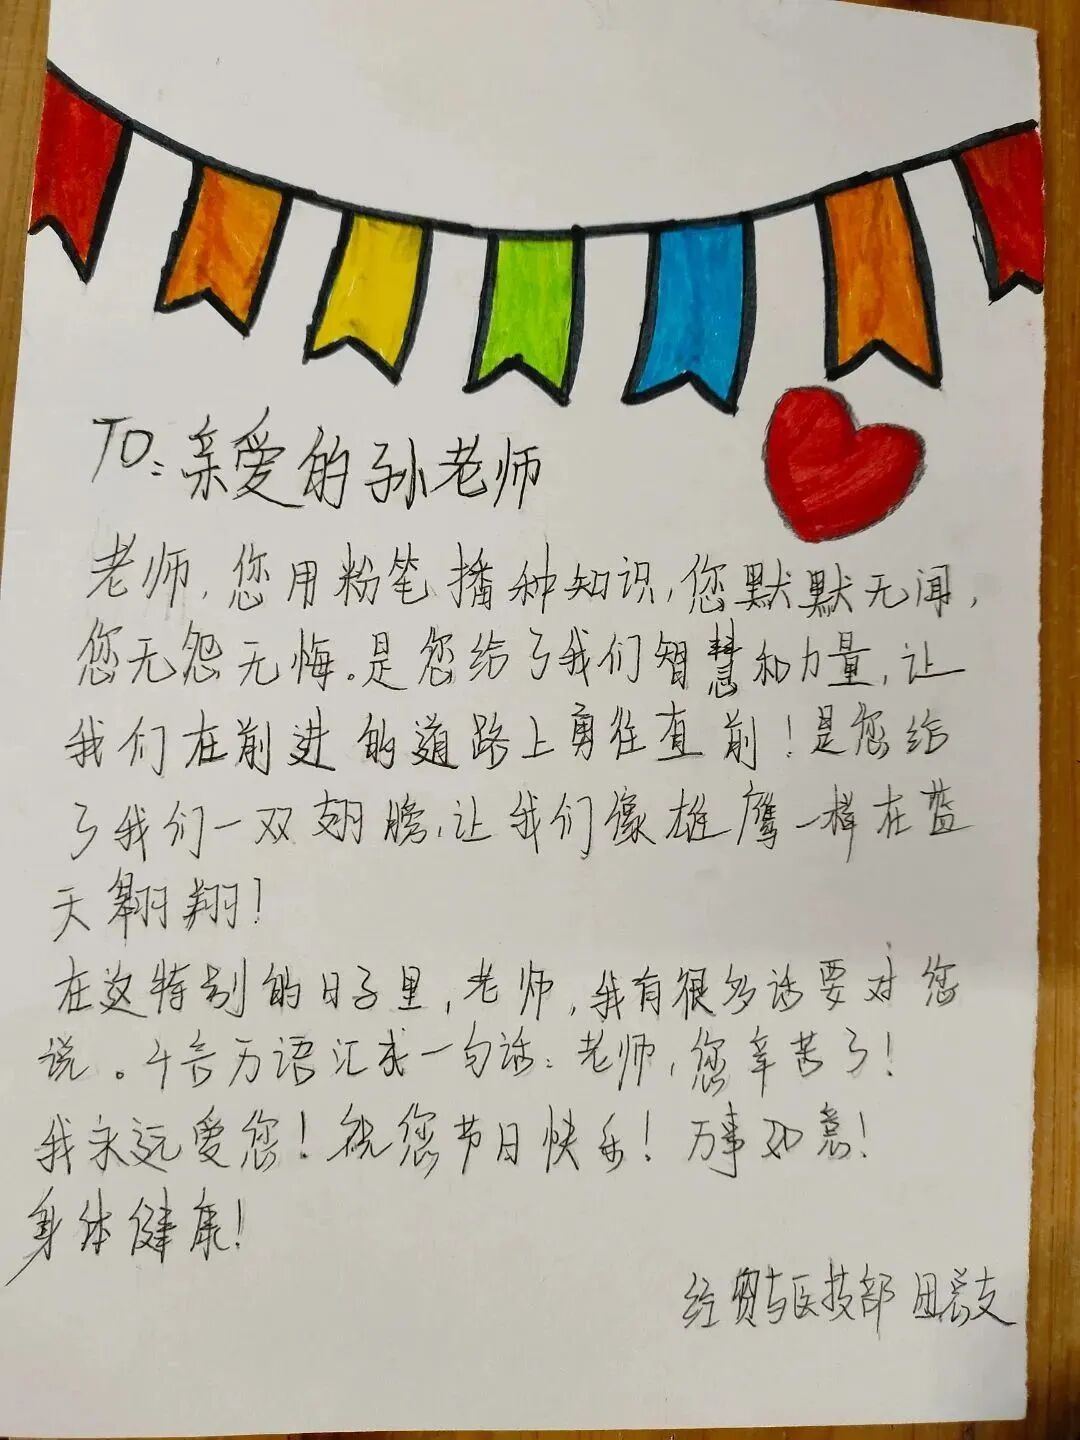 TO:亲爱的孙老师
老师,您用粉笔播种知识,您默默无闻,
您无怨无悔。是您给了我们智慧和力量,让
我们在前进的道路上勇往直前!是您给
了我们一双翅膀,让我们像雄鹰一样在蓝
天翱翔!
在这特别的日子里,老师,我有很多话要对您
说。千言万语汇成一句话:老师,您辛苦了!
我永远爱您!祝您节日快乐!万事如意!
身体健康!
经贸与医技部 团总支